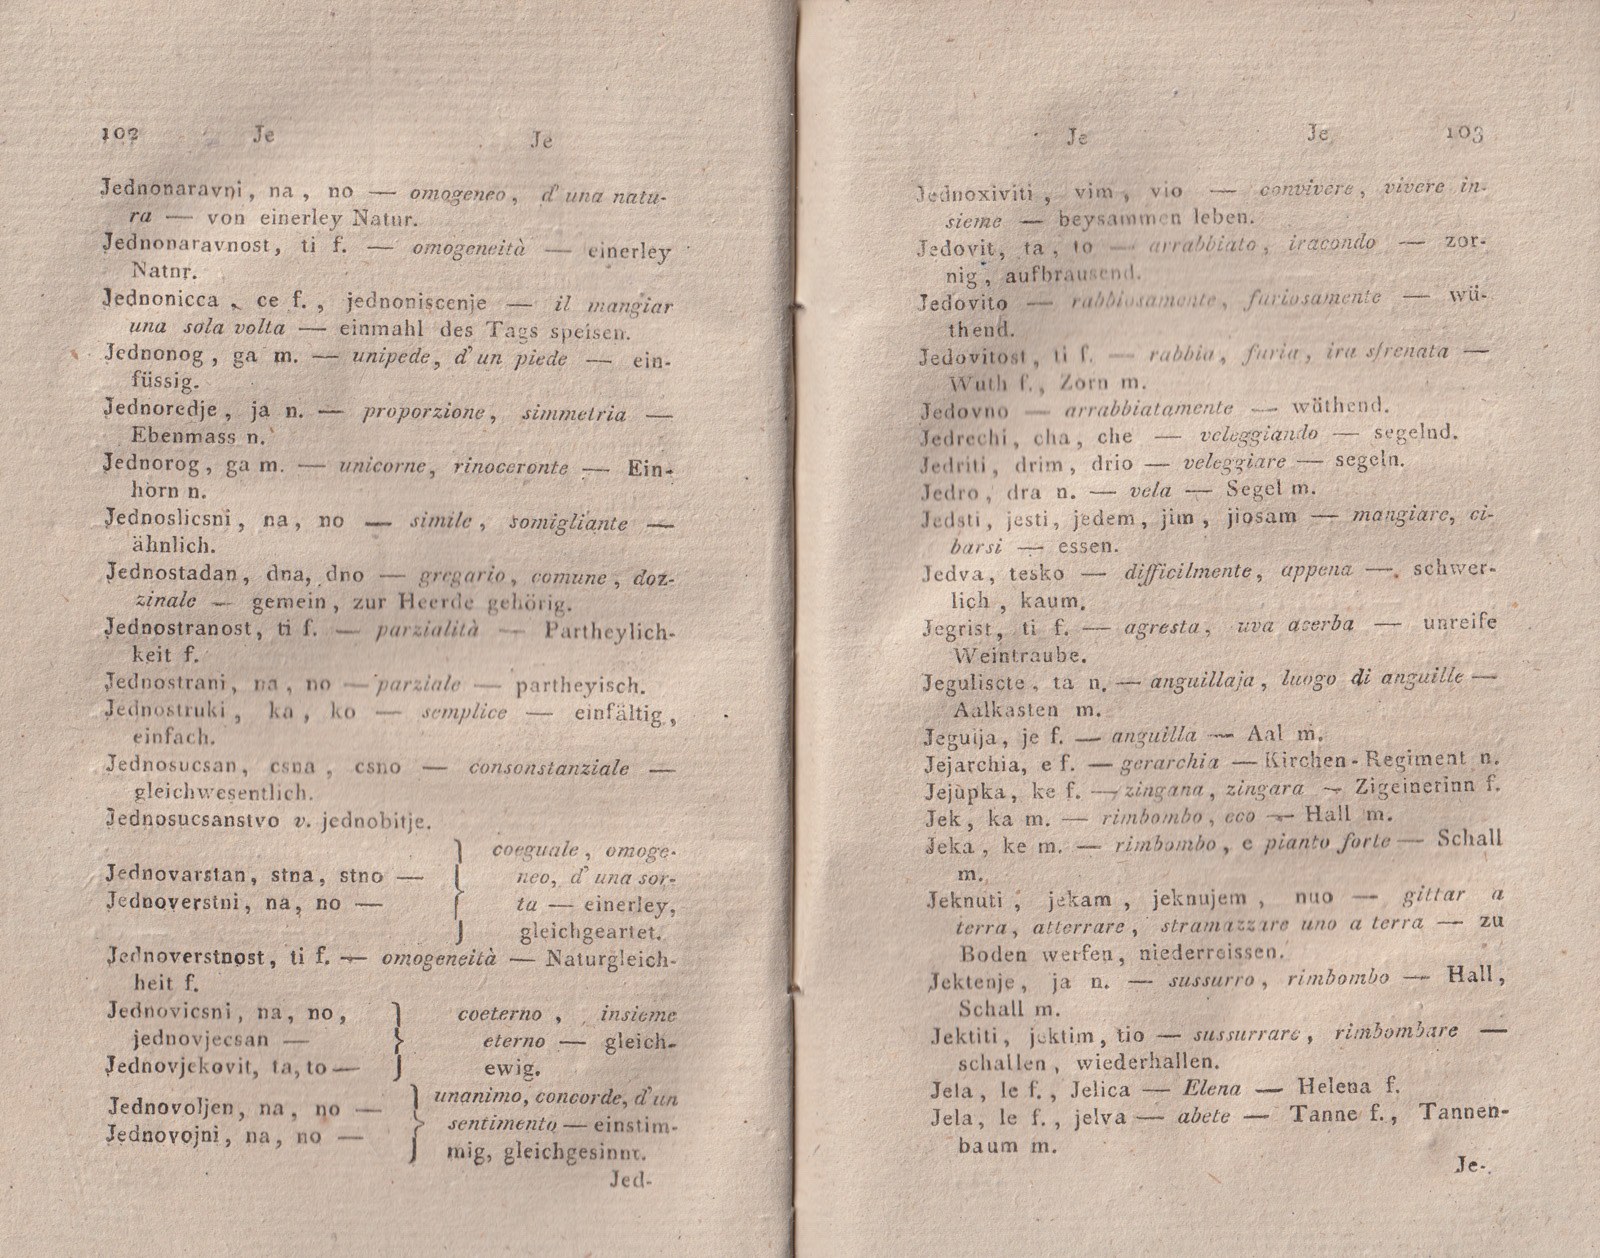 102 Je Je
Jednonaravni, na, no — omogeneo, d' una natu-
ra — von einerley Natur.
Jednonaravnost, ti f. — omogeneità — einerley
Natur.
Jednonicca, ce f., jednoniscenje — il mangiar
una sola volta — einmahl des Tags speisen.
Jednonog, ga m. — unipede, d' un piede — ein-
füssig.
Jednoredje, ja n. — proporzione, simmetria —
Ebenmass n.
Jednorog, ga m. — unicorne, rinoceronte — Ein-
horn n.
Jednoslicsni, na, no — simile, somigliante —
ähnlich.
Jednostadan, dna, dno — gregario, comune, doz-
zinale — gemein, zur Heerde gehörig.
Jednostranost, ti f. — parzialità — Partheylich-
keit f.
Jednostrani, na, no — parziale — partheyisch.
Jednostruki, ka, ko — semplice — einfältig,
einfach.
Jednosucsan, csna, csno — consonstanziale —
gleichwesentlich.
Jednosucsanstvo v. jednobitje.
coeguale, omoge-
Jednovarstan, stna, stno — neo, d' una sor-
Jednoverstni, na, no — ta — einerley,
gleichgeartet.
Jednoverstnost, ti f. — omogeneità — Naturgleich-
heit f.
Jednovicsni, na, no, coeterno, insieme
jednovjecsan — eterno — gleich-
Jednovjekovit, ta, to — ewig.
unanimo, concorde, d'un
Jednovoljen, na, no — sentimento — einstim-
Jednovojni, na, no — mig, gleichgesinnt.
Jed-
Je Je 103
Jednoxiviti, vim, vio — convivere, vivere in-
sieme — beysammen leben.
Jedovit, ta, to — arrabbiato, iracondo — zor-
nig, aufbrausend.
Jedovito — rabbiosamente, furiosamente — wü-
thend.
Jedovitost, ti f. — rabbia, furia, ira sfrenata —
Wuth f., Zorn m.
Jedovno — arrabbiatamente — wüthend.
Jedrechi, cha, che — veleggiando — segelnd.
Jedriti, drim, drio — veleggiare — segeln.
Jedro, dra n. — vela — Segel m.
Jedsti, jesti, jedem, jim, jiosam — mangiare, ci-
barsi — essen.
Jedva, tesko — difficilmente, appena — schwer-
lich, kaum.
Jegrist, ti f. — agresta, uva acerba — unreife
Weintraube.
Jeguliscte, ta n. — anguillaja, luogo di anguille —
Aalkasten m.
Jegulja, je f. — anguilla — Aal m.
Jejarchia, e f. — gerarchia — Kirchen-Regiment n.
Jejùpka, ke f. — zingana, zingara — Zigeinerinn f.
Jek, ka m. — rimbombo, eco — Hall m.
Jeka, ke m. — rimbombo, e pianto forte — Schall
m.
Jeknuti, jekam, jeknujem, nuo — gittar a
terra, atterrare, stramazzare uno a terra — zu
Boden werfen, niederreissen.
Jektenje, ja n. — sussurro, rimbombo — Hall,
Schall m.
Jektiti, jektim, tio — sussurrare, rimbombare —
schallen, wiederhallen.
Jela, le f., Jelica — Elena — Helena f.
Jela, le f., jelva — abete — Tanne f., Tannen-
baum m.
Je-